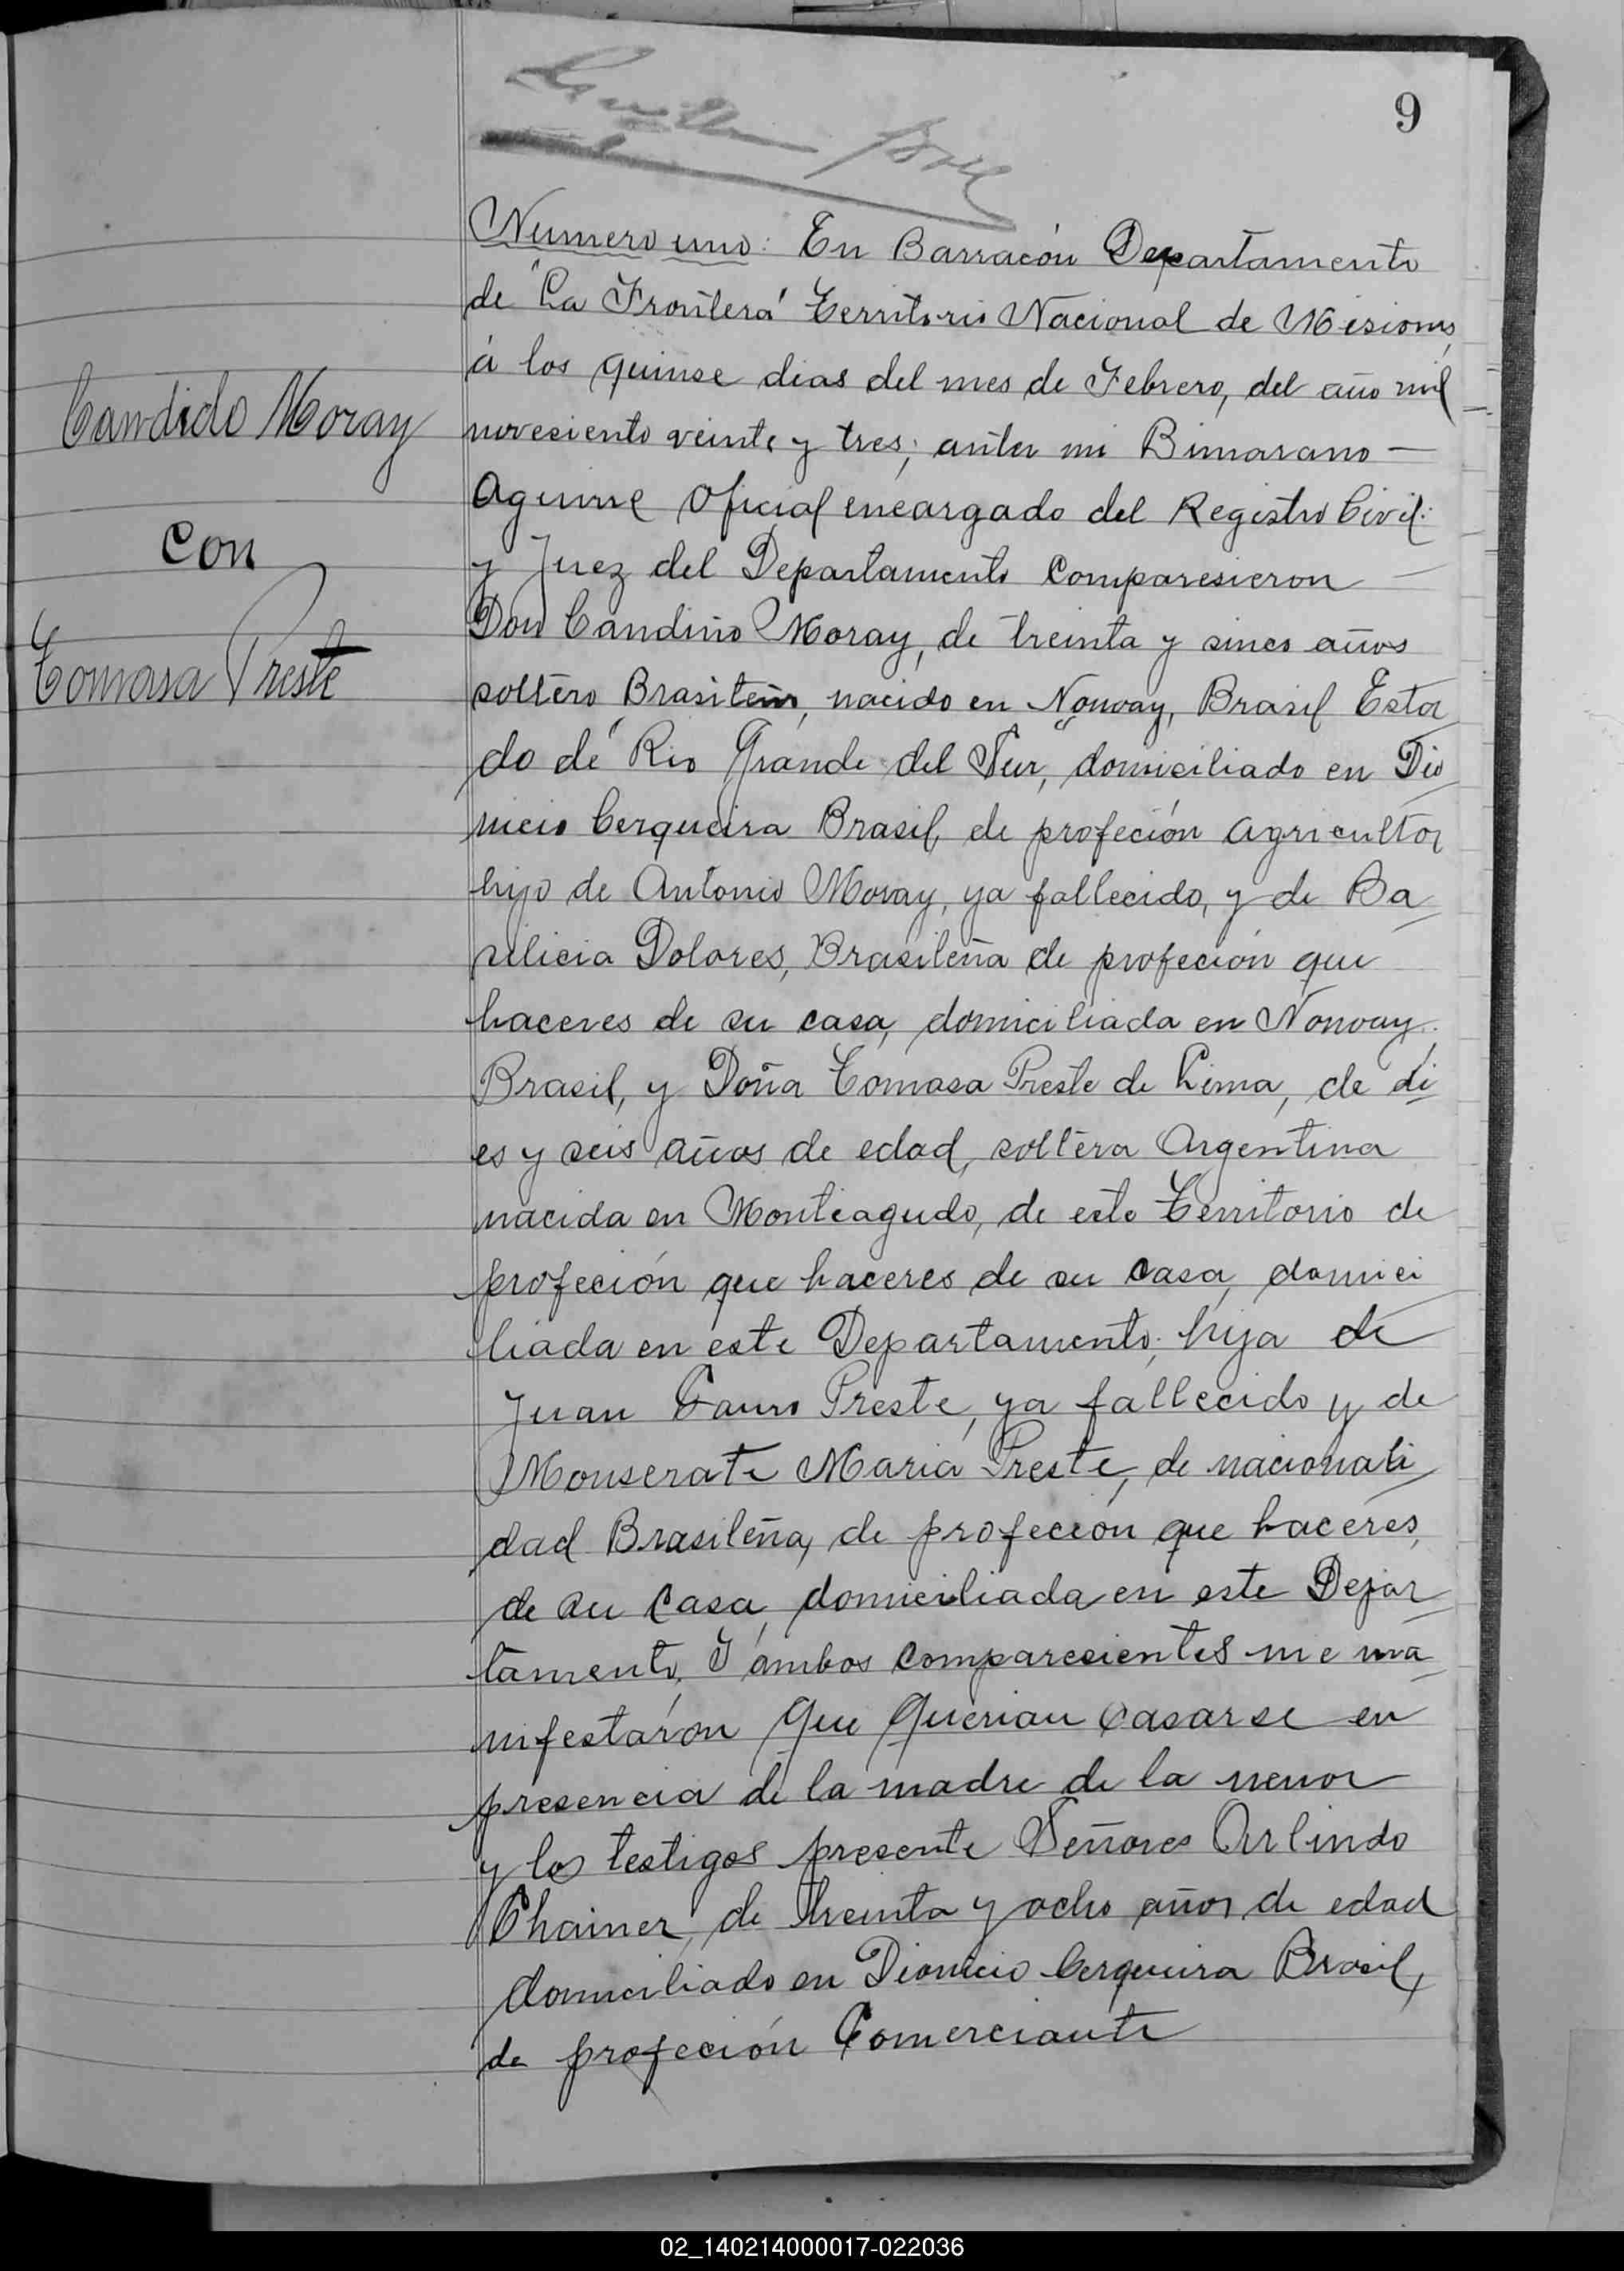 9
Numero uno: En Barracón Departamento
de "La Frontera" Territorio Nacional de Misiones,
á los quinse dias del mes de Febrero, del año mil
novesiento veinte y tres; anter mi Bimarano —
Aguirre Oficial encargado del Registro Civil:
y Juez del Departamento Comparesieron —
Candido Moray
con
Tomasa Preste
Don Candino Moray, de treinta y sinco años
soltero Brasileño, nacido en Nonoay, Brasil Esta
do de "Rio Grande del Sur," domiciliado en Dio
nicio Cerqueira Brasil, de profeción agricultor
hijo de Antonio Moray, ya fallecido, y de Ba
silicia Dolores, Brasileña de profeción que
haceres de su casa, domiciliada en Nonoay,
Brasil, y Doña Tomasa Preste de Lima, de di
es y seis años de edad, soltera Argentina
nacida en Monteagudo, de este Territorio de
profeción que haceres de su casa, domici
liada en este Departamento; hija de
Juan Preste, ya fallecido y de
Monserate Maria Preste, de nacionali
dad Brasileña, de profeción que haceres,
de su casa, domiciliada en este Depar
tamento, Y ambos comparecientes me ma
nifestaron que querian casarse en
presencia de la madre de la menor
y los testigos presente Señores Arlindo
Chainer, de treinta y ocho años de edad
domiciliado en Dionicio Cerqueira Brasil,
de profeción Comerciante
02_140214000017-022036